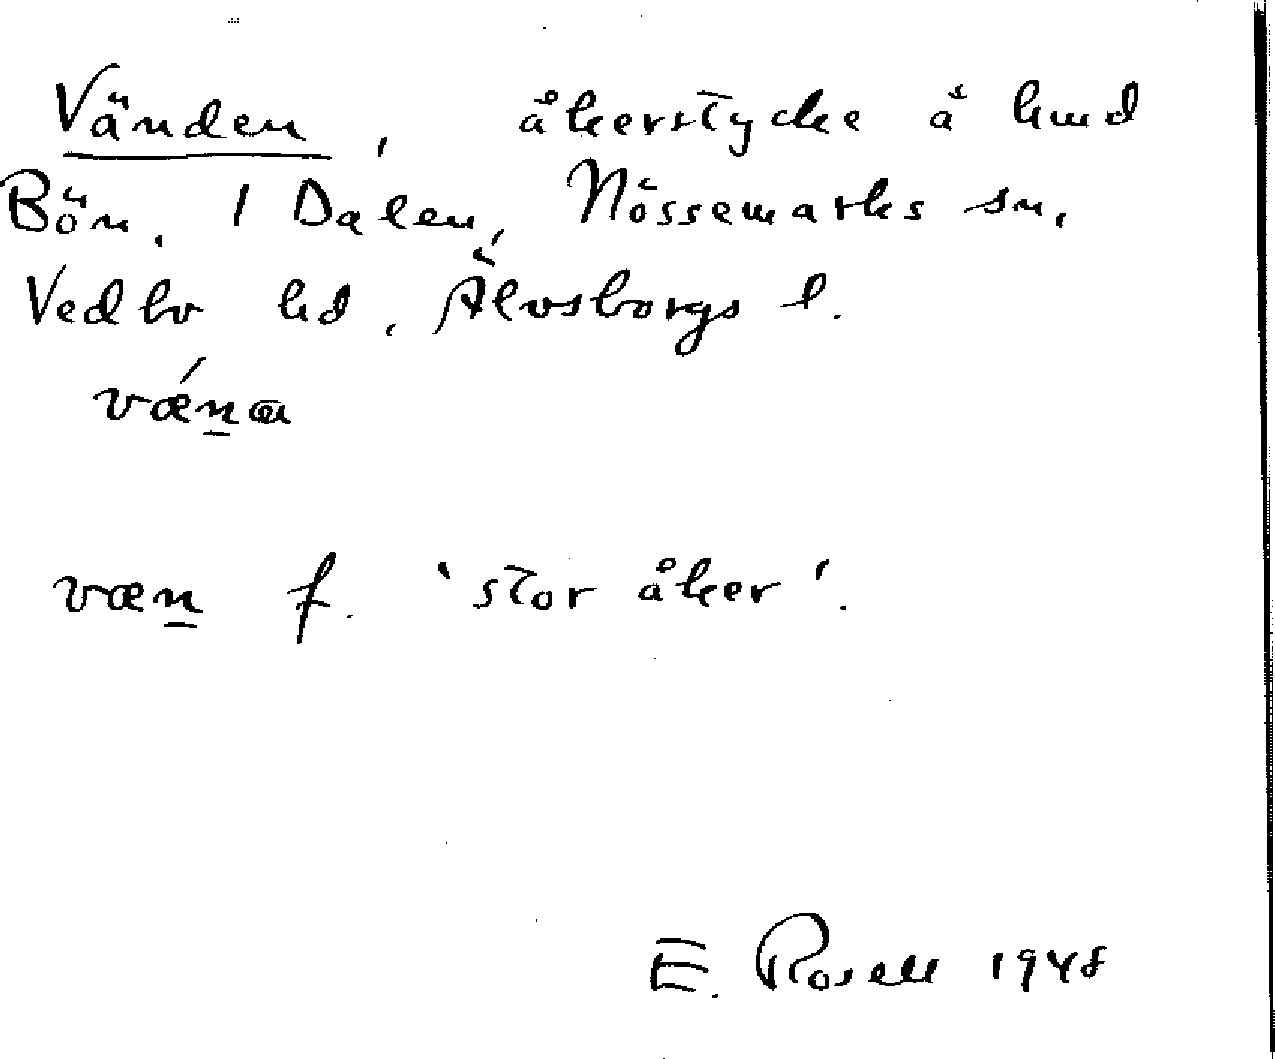 Vänden, åkerstycke å hmd
Bön, 1 Dalen, Nössemarks sn,
Vedbo hd, Älvsborgs l.
vǽn̲a
væn̲ f. 'stor åker'.
E. Rosell 1948